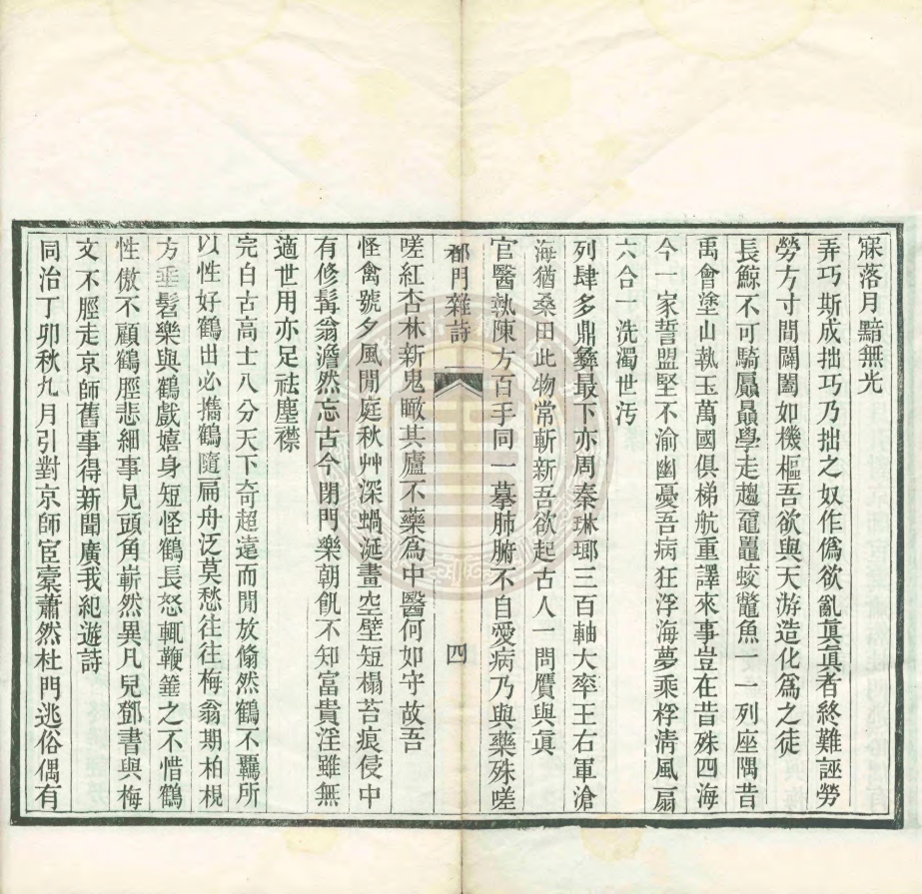 寐落月黯無光
弄巧斯成拙巧乃拙之奴作僞欲亂眞眞者終難誣勞
勞方寸間闔闔如機樞吾欲與天游造化爲之徒
長鯨不可騎屭贔學走趨黿鼉蛟鼈魚一一列座隅昔
禹會塗山執玉萬國俱梯航重譯來事豈在昔殊四海
今一家誓盟堅不渝幽憂吾病狂浮海夢乘桴淸風扇
六合一洗濁世汚
列肆多鼎彝最下亦周秦琳瑯三百軸大率王右軍滄
海猶桑田此物常斬新吾欲起古人一問贋與眞
官醫執陳方百手同一摹肺腑不自愛病乃與藥殊嗟
都門雜詩 四
嗟紅杏林新鬼瞰其廬不藥爲中醫何如守故吾
怪禽號夕風閒庭秋艸深蝸涎畫空壁短榻苔痕侵中
有修髯翁澹然忘古今閉門樂朝飢不知富貴淫雖無
適世用亦足祛塵襟
完白古高士八分天下奇超遠而閒放翛然鶴不羈所
以性好鶴出必攜鶴隨扁舟泛莫愁往往梅翁期柏梘
方垂髫樂與鶴戲嬉身短怪鶴長怒輒鞭箠之不惜鶴
性傲不顧鶴脛悲細事見頭角嶄然異凡兒鄧書與梅
文不脛走京師舊事得新聞廣我紀遊詩
同治丁卯秋九月引對京師宦橐蕭然杜門逃俗偶有